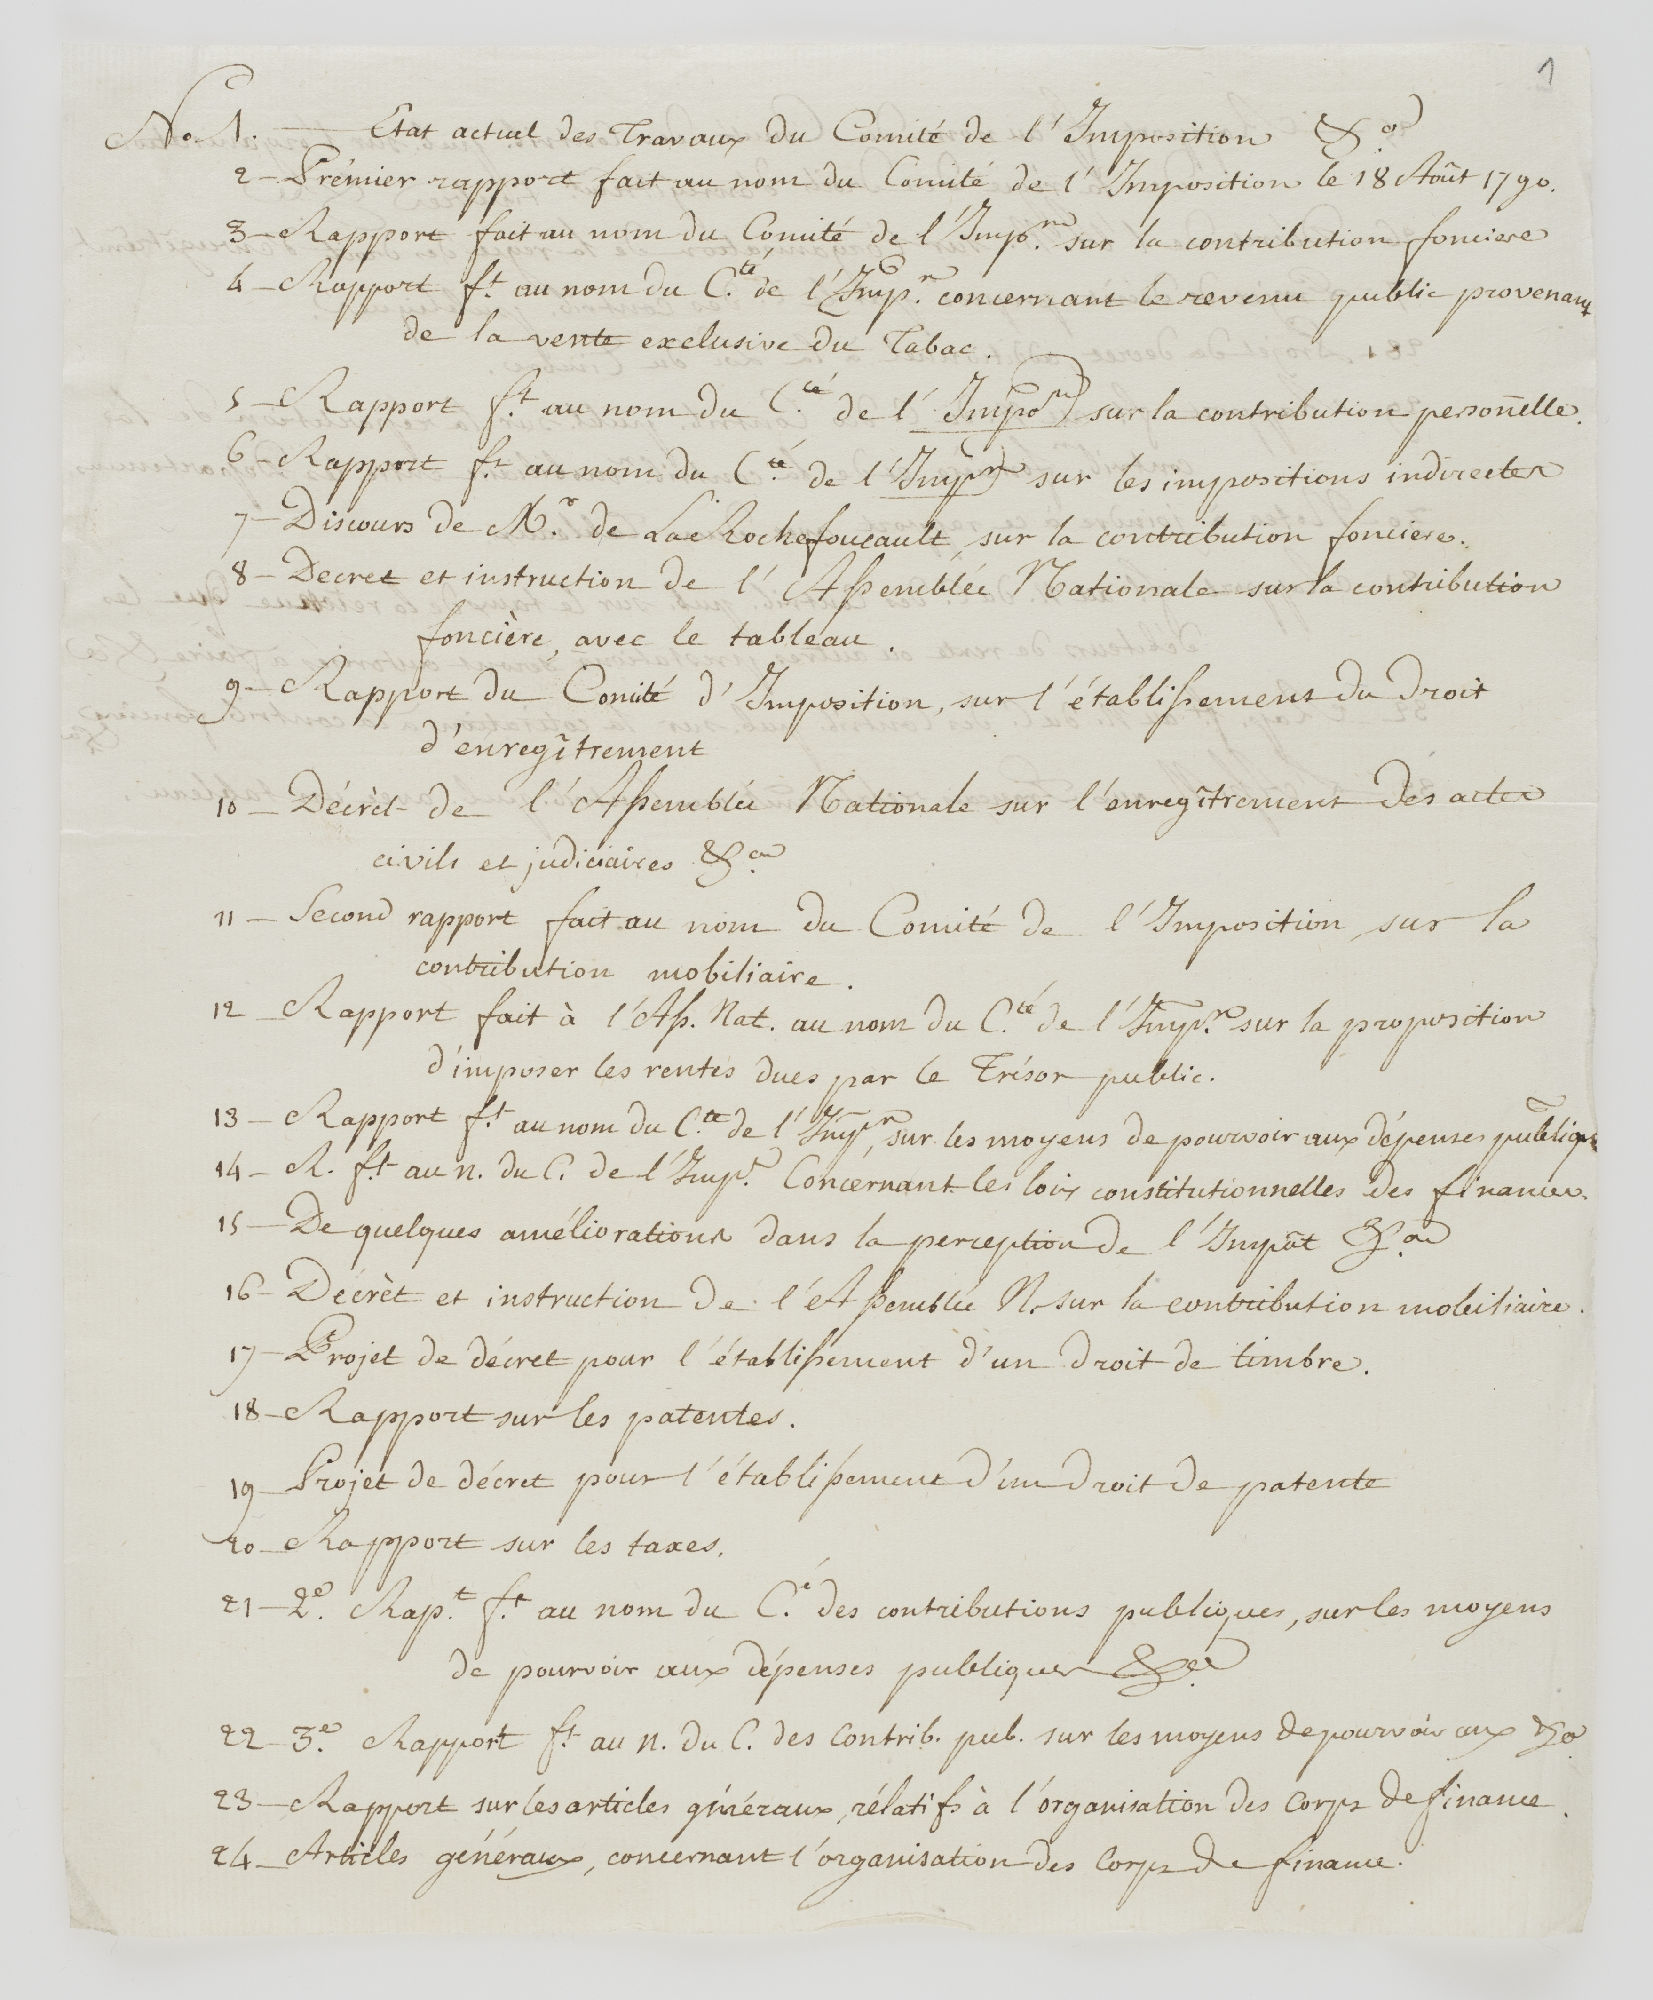 1
No. 1. — Etat actuel des Travaux du Comité de l'Imposition &a.
2 — Prémier rapport fait au nom du Comité de l'Imposition le 18 Août 1790.
3 — Rapport fait au nom du Comité de l'Impon. sur la contribution fonciere
4 — Rapport ft. au nom du C.té de l'Imp.n concernant le revenu public provenant
de la vente exclusive du Tabac.
5 — Rapport ft. au nom du C.té de l'Impon sur la contribution persoñelle.
6 — Rapport ft. au nom du C.té de l'Impn sur les impositions indirectes
7 — Discours de M.r de La Rochefoucault, sur la contribution fonciere.
8 — Decret et instruction de l'Assemblée Nationale sur la contribution
foncière, avec le tableau.
9 — Rapport du Comité d'Imposition, sur l'établissement du Droit
d'enregîtrement
10 — Décrèt de l'Assemblée Nationale sur l'enregîtrement des actes
civils et judiciaires &a.
11 — Second rapport fait au nom du Comité de l'Imposition, sur la
contribution mobiliaire.
12 — Rapport fait à l'Ass. Nat. au nom du C.té de l'Imp.n sur la proposition
d'imposer les rentes dues par le Trésor public.
13 — Rapport ft. au nom du C.té de l'Imp.n, sur les moyens de pourvoir aux dépenses publiq
14 — R. ft. au n. du C. de l'Imp.n Concernant les loix constitutionnelles des finances.
15 — De quelques améliorations dans la perception de l'Impôt &a
16 — Décrèt et instruction de l'Assemblée N. sur la contribution mobiliaire.
17 — Projet de décret pour l'établissement d'un Droit de timbre.
18 — Rapport sur les patentes.
19 — Projet de décret pour l'établissement d'un Droit de patente
20 — Rapport sur les taxes.
21 — 2e. Rap.t ft. au nom du C.é des contributions publiques, sur les moyens
de pourvoir aux dépenses publiques &a.
22 — 3e. Rapport ft. au n. du C. des Contrib. pub. sur les moyens de pourvoir aux &a
23 — Rapport sur les articles généraux, rélatifs à l'organisation des Corps de finance.
24 — Articles généraux, concernant l'organisation des Corps de finance.